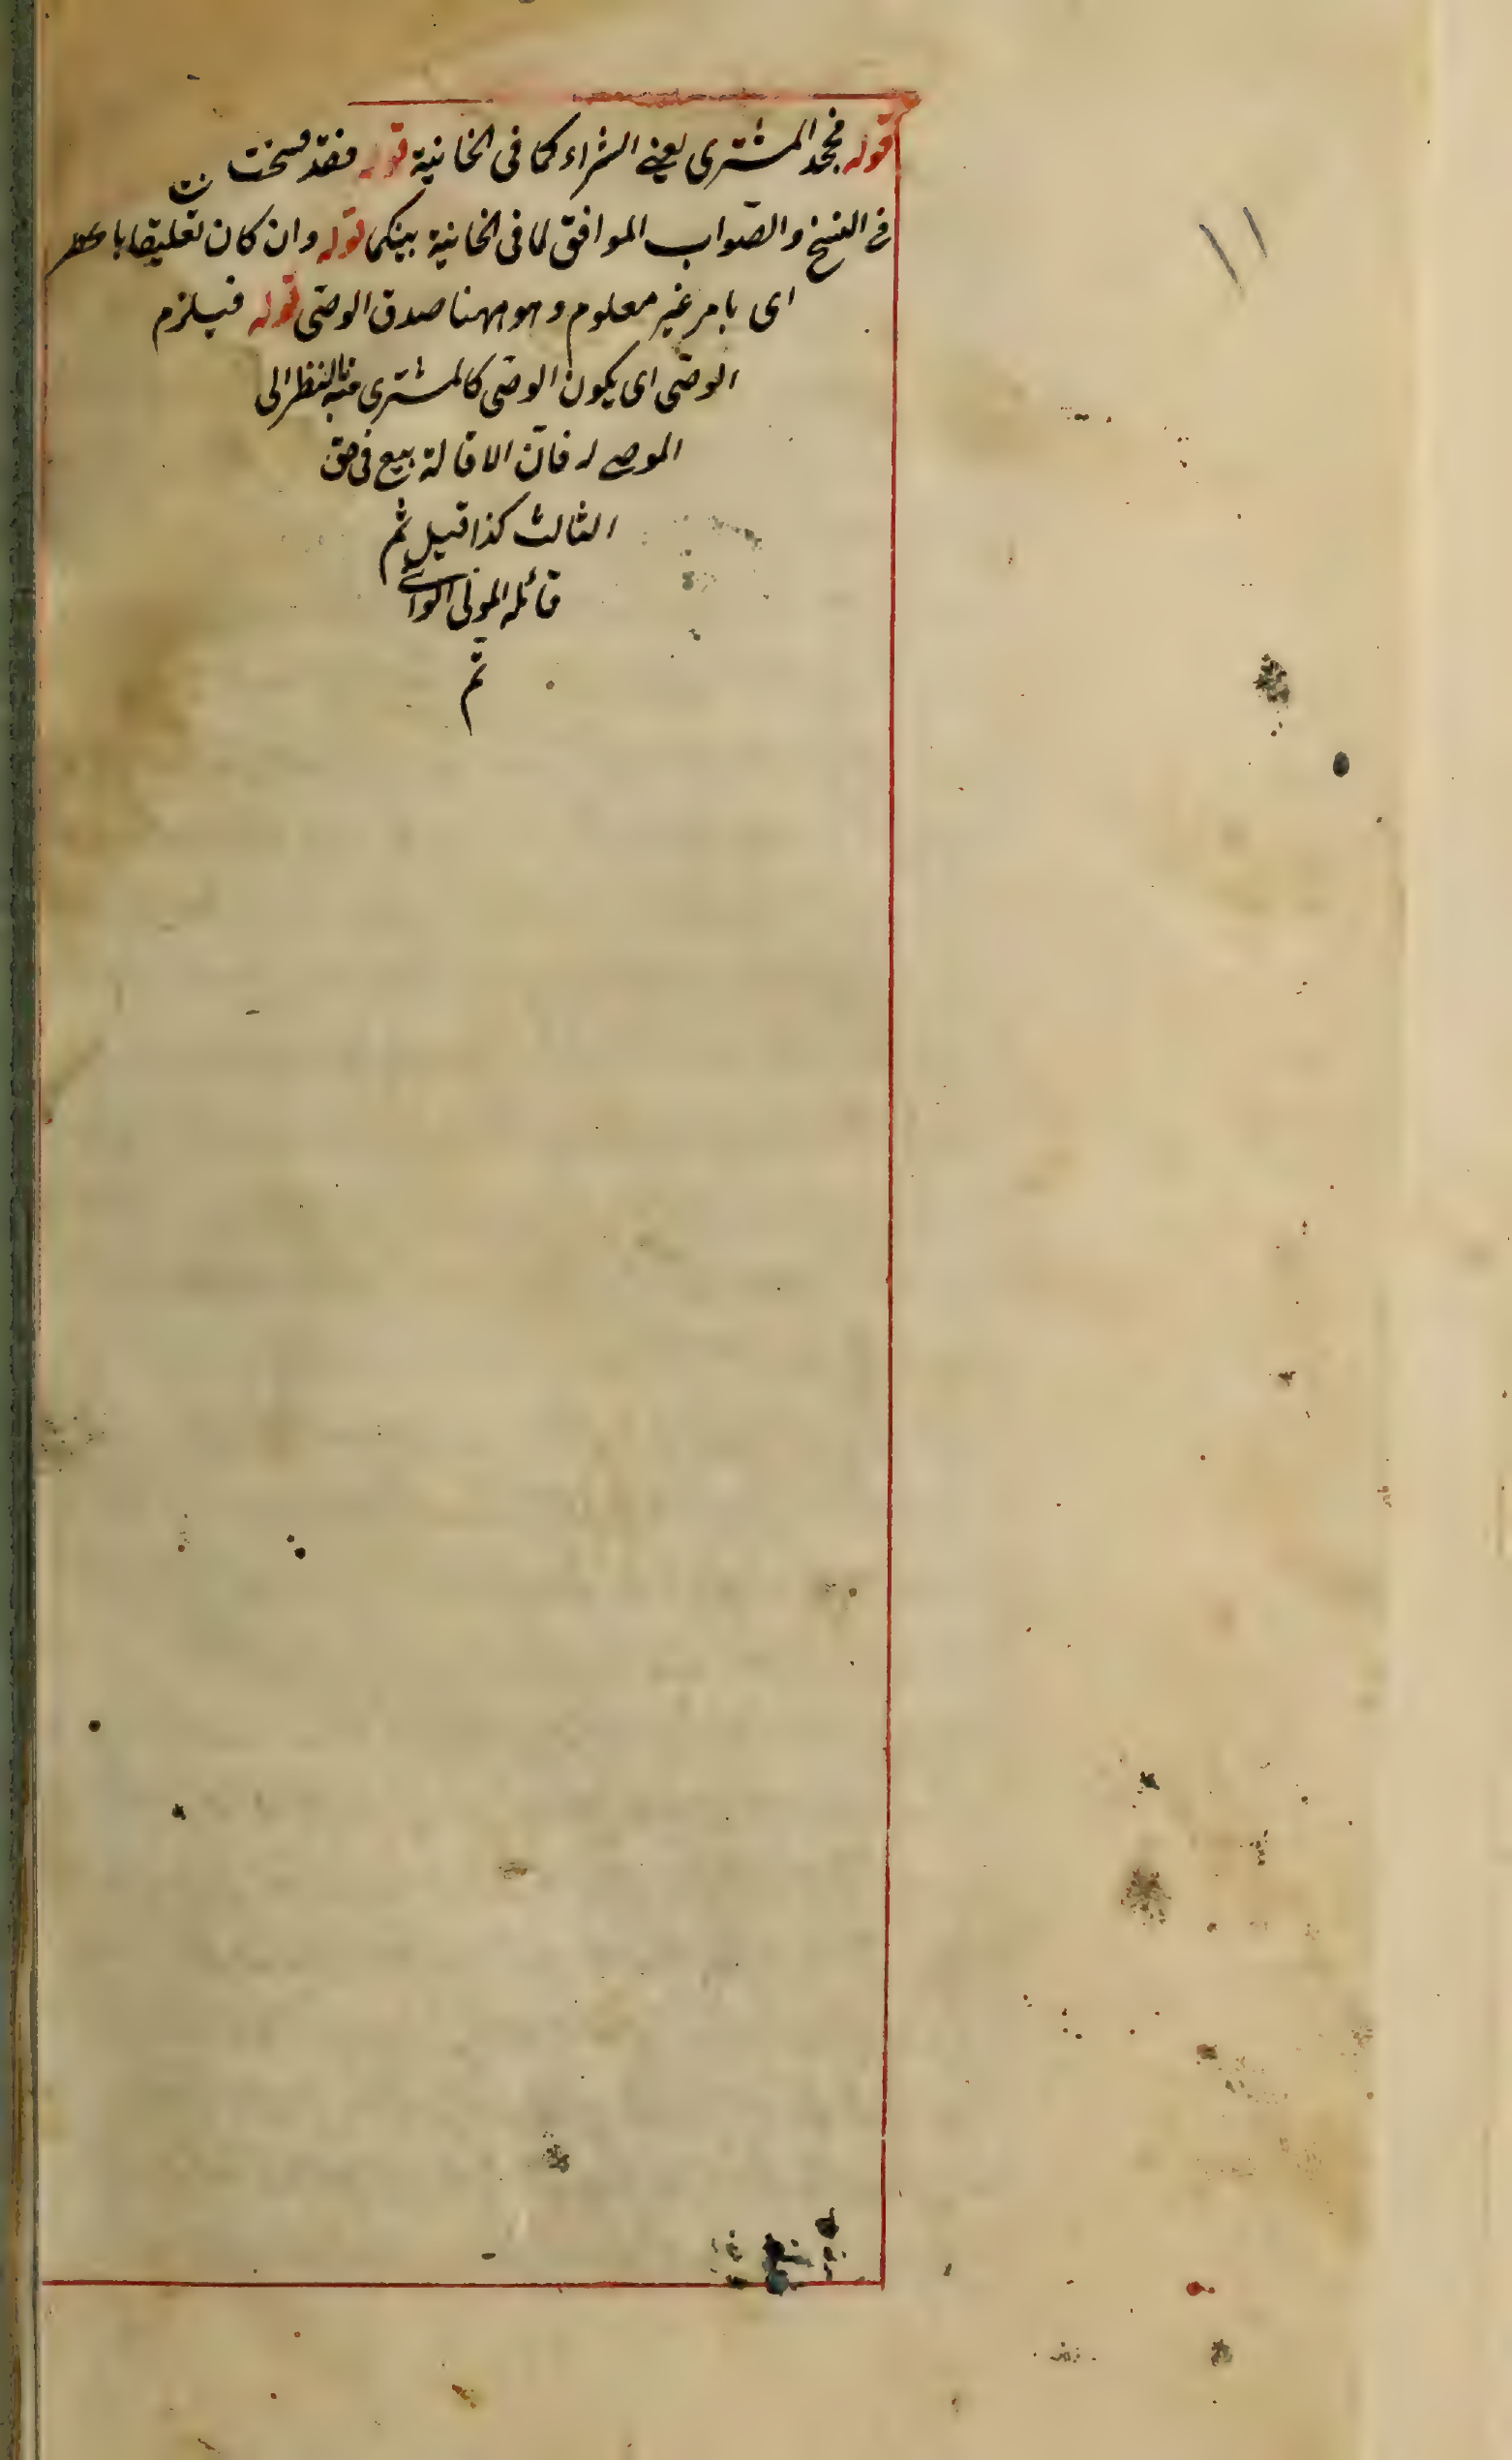 قوله فجحد المشترى يعنى الشراء كما فى الخانية قوله فقد فسخت
فى النسخ والصّواب الموافق لما فى الخانية بينكما قوله وان كان تعليقا
اى بامر غير معلوم وهو ههنا صدق الوصّى قوله فيلزم
الوصّى اى يكون الوصّى كالمشترى منه بالنظر الى
الموصى له فانّ الاقالة بيع فى حق
الثالث كذا قيل ثم
قائله المولى الوانى
تم
١١